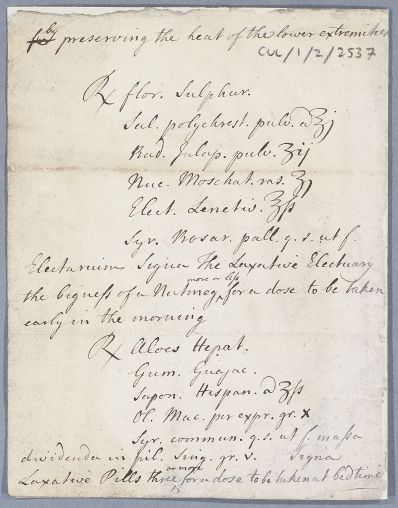 for by preserving the heat of the lower extremities
CUL/1/2/2537
℞ flor. Sulphur.
Sal. polychrest. pulv. a ʒj
Rad. Jalap. pulv. ʒij
Nuc. Moschat. ras. ʒj
Elect. Lenetiv. ℥ß
Syr. Rosar. pall. q. s. ut f.
Electarium Signa The Laxative Electuary
more or less
the bigness of a Nutmeg ‸ for a dose to be taken
early in the morning
℞ Aloes Hepat.
Gum. Guajac.
Sapon. Hispan. a ʒß
Ol. Mac. per expr. gr. x
Syr. commun. q. s. ut f. massa
dividenda in pil. Sing. gr. v. Signa
or more
Laxative Pills three ‸ for a dose to be taken at bedtime